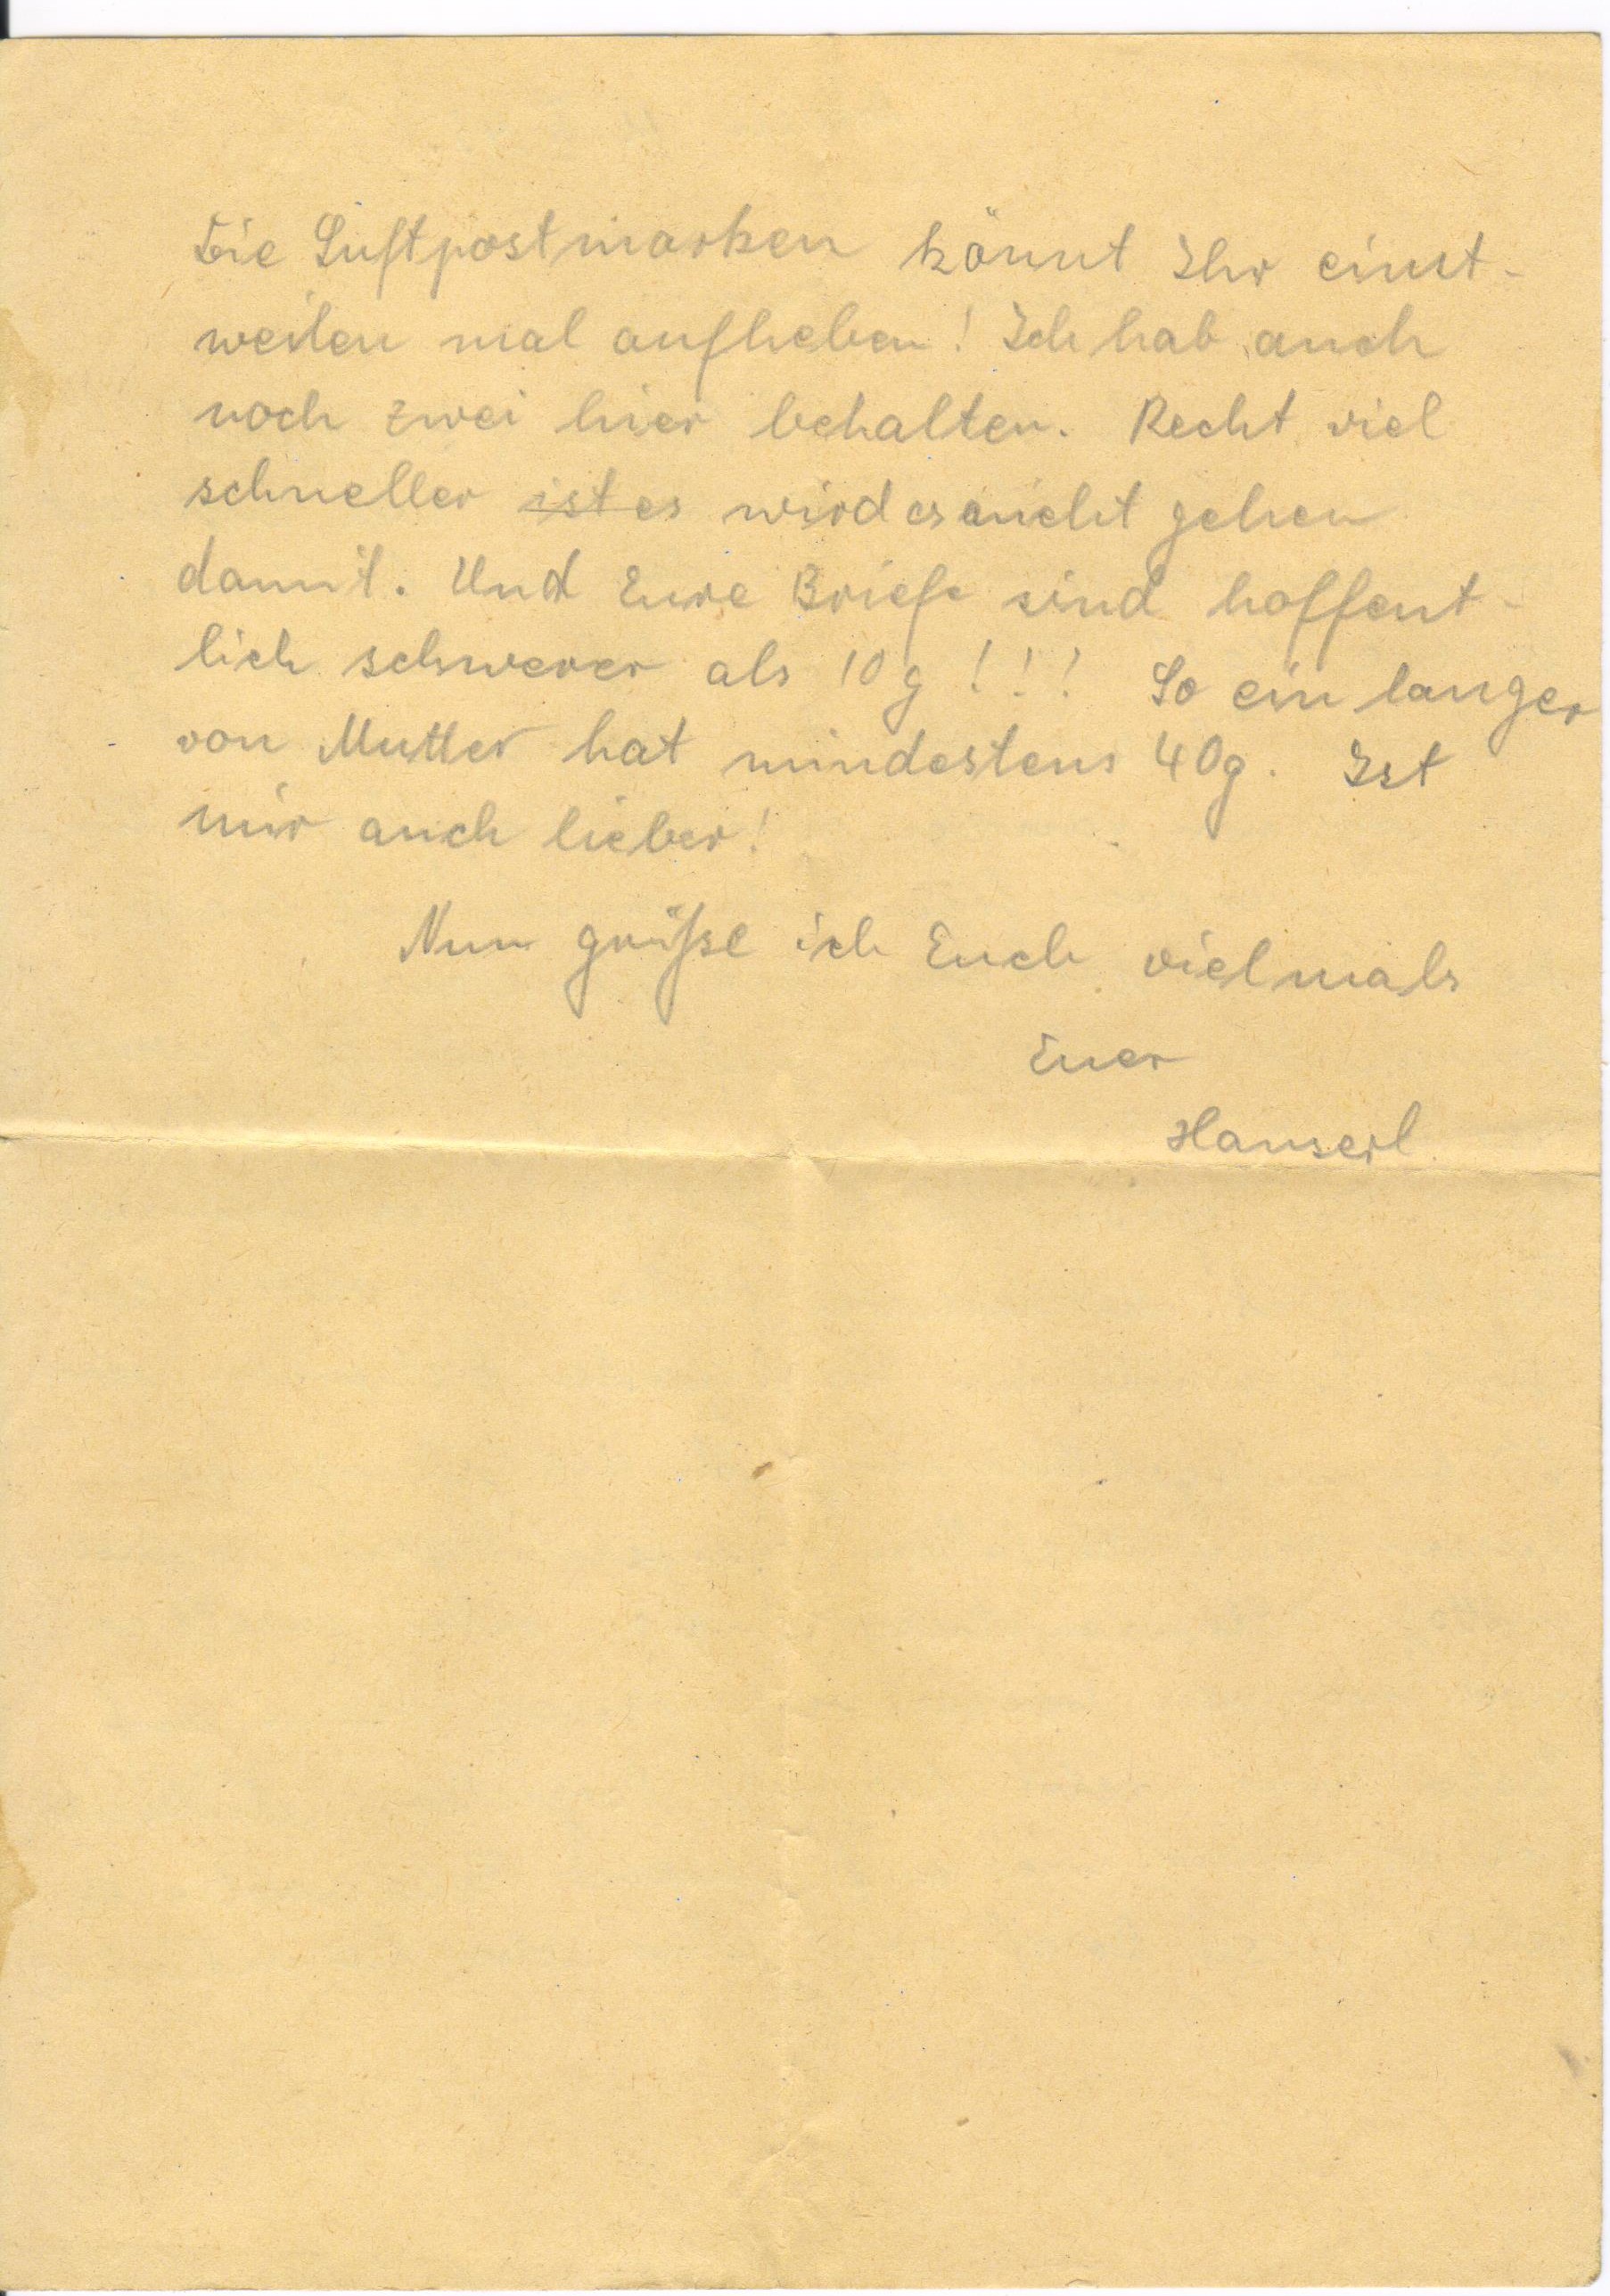 Die Luftpostmarken könnt Ihr einst-
weilen mal aufheben! Ich hab auch
noch zwei hier behalten. Recht viel
schneller ist es wird es nicht gehen
damit. Und Eure Briefe sind hoffent-
lich schwerer als 10 g!!! So ein langer
von Mutter hat mindestens 40g. Ist
mir auch lieber!
Nun grüße ich Euch vielmals
Euer
Hanserl